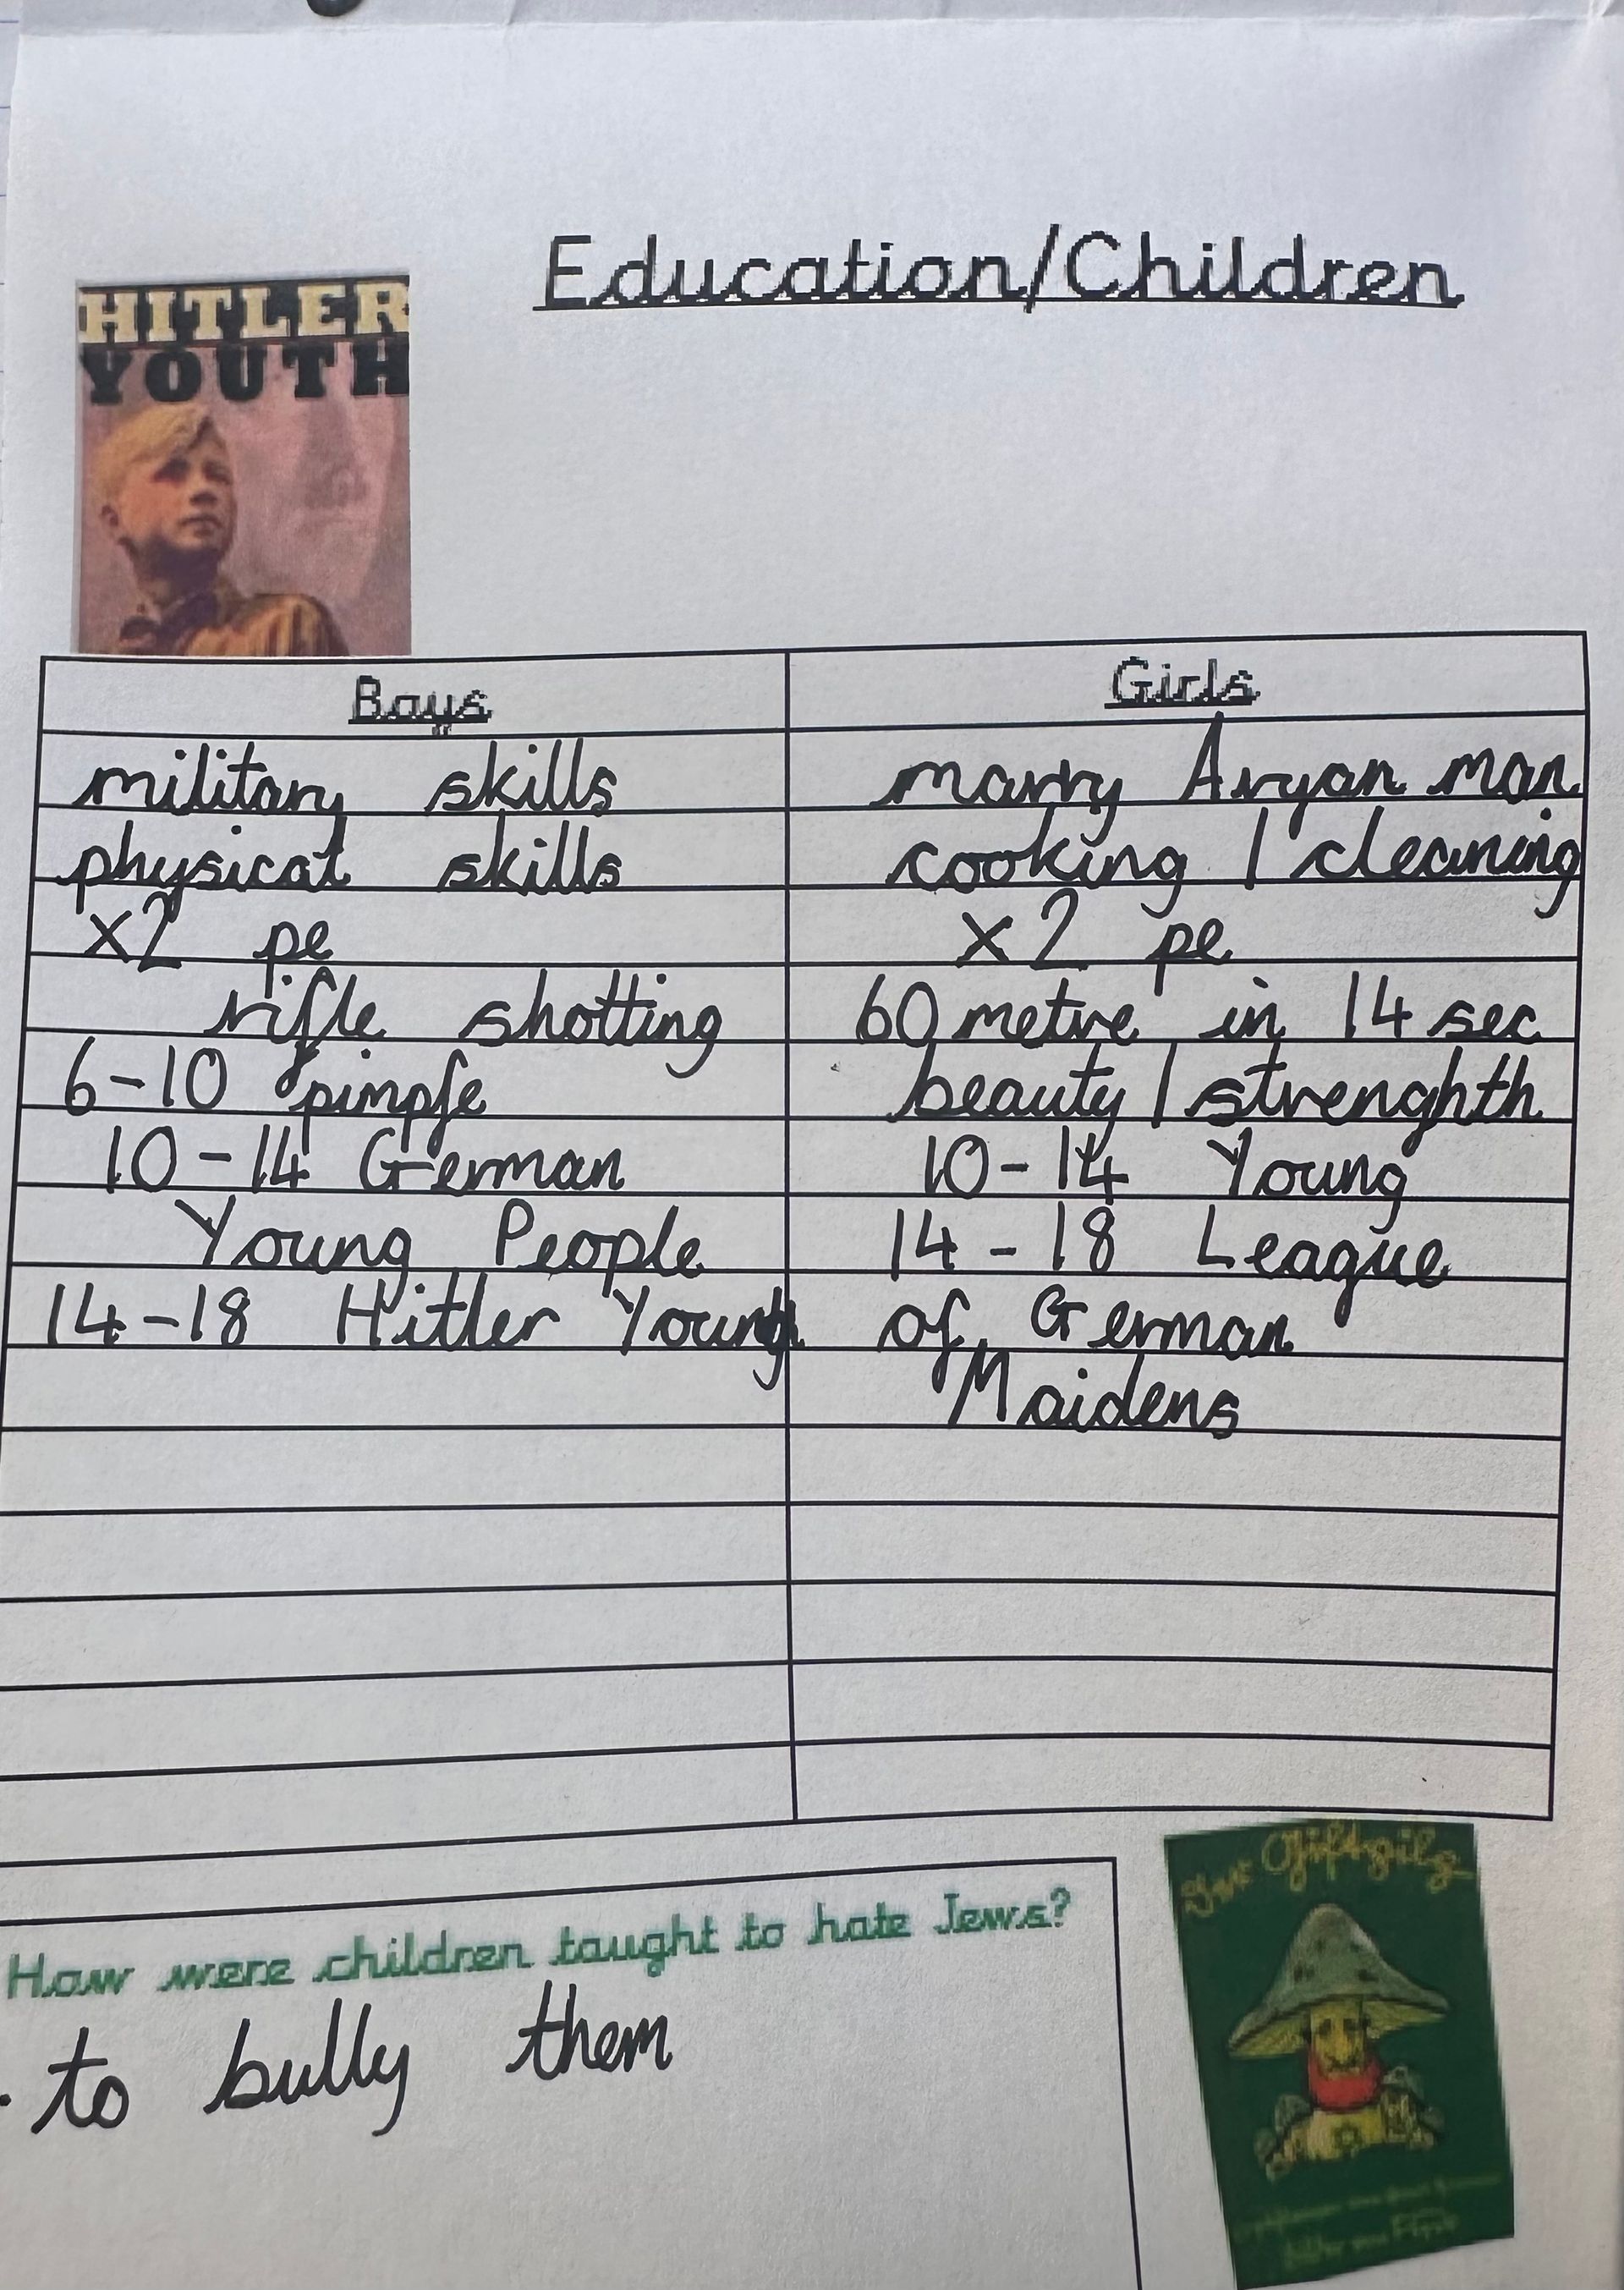 Education/Children
HITLER
YOUTH
Boys
Girls
military skills
marry Aryan man
physical skills
cooking / cleaning
x2 pe
x2 pe
rifle shotting
60 metre in 14 sec
6-10 pimpfe
beauty / strenghth
10-14 German
10-14 Young
Young People
14-18 League
14-18 Hitler Young
of German
Maidens
Der Giftpilz
How were children taught to hate Jews?
. to bully them